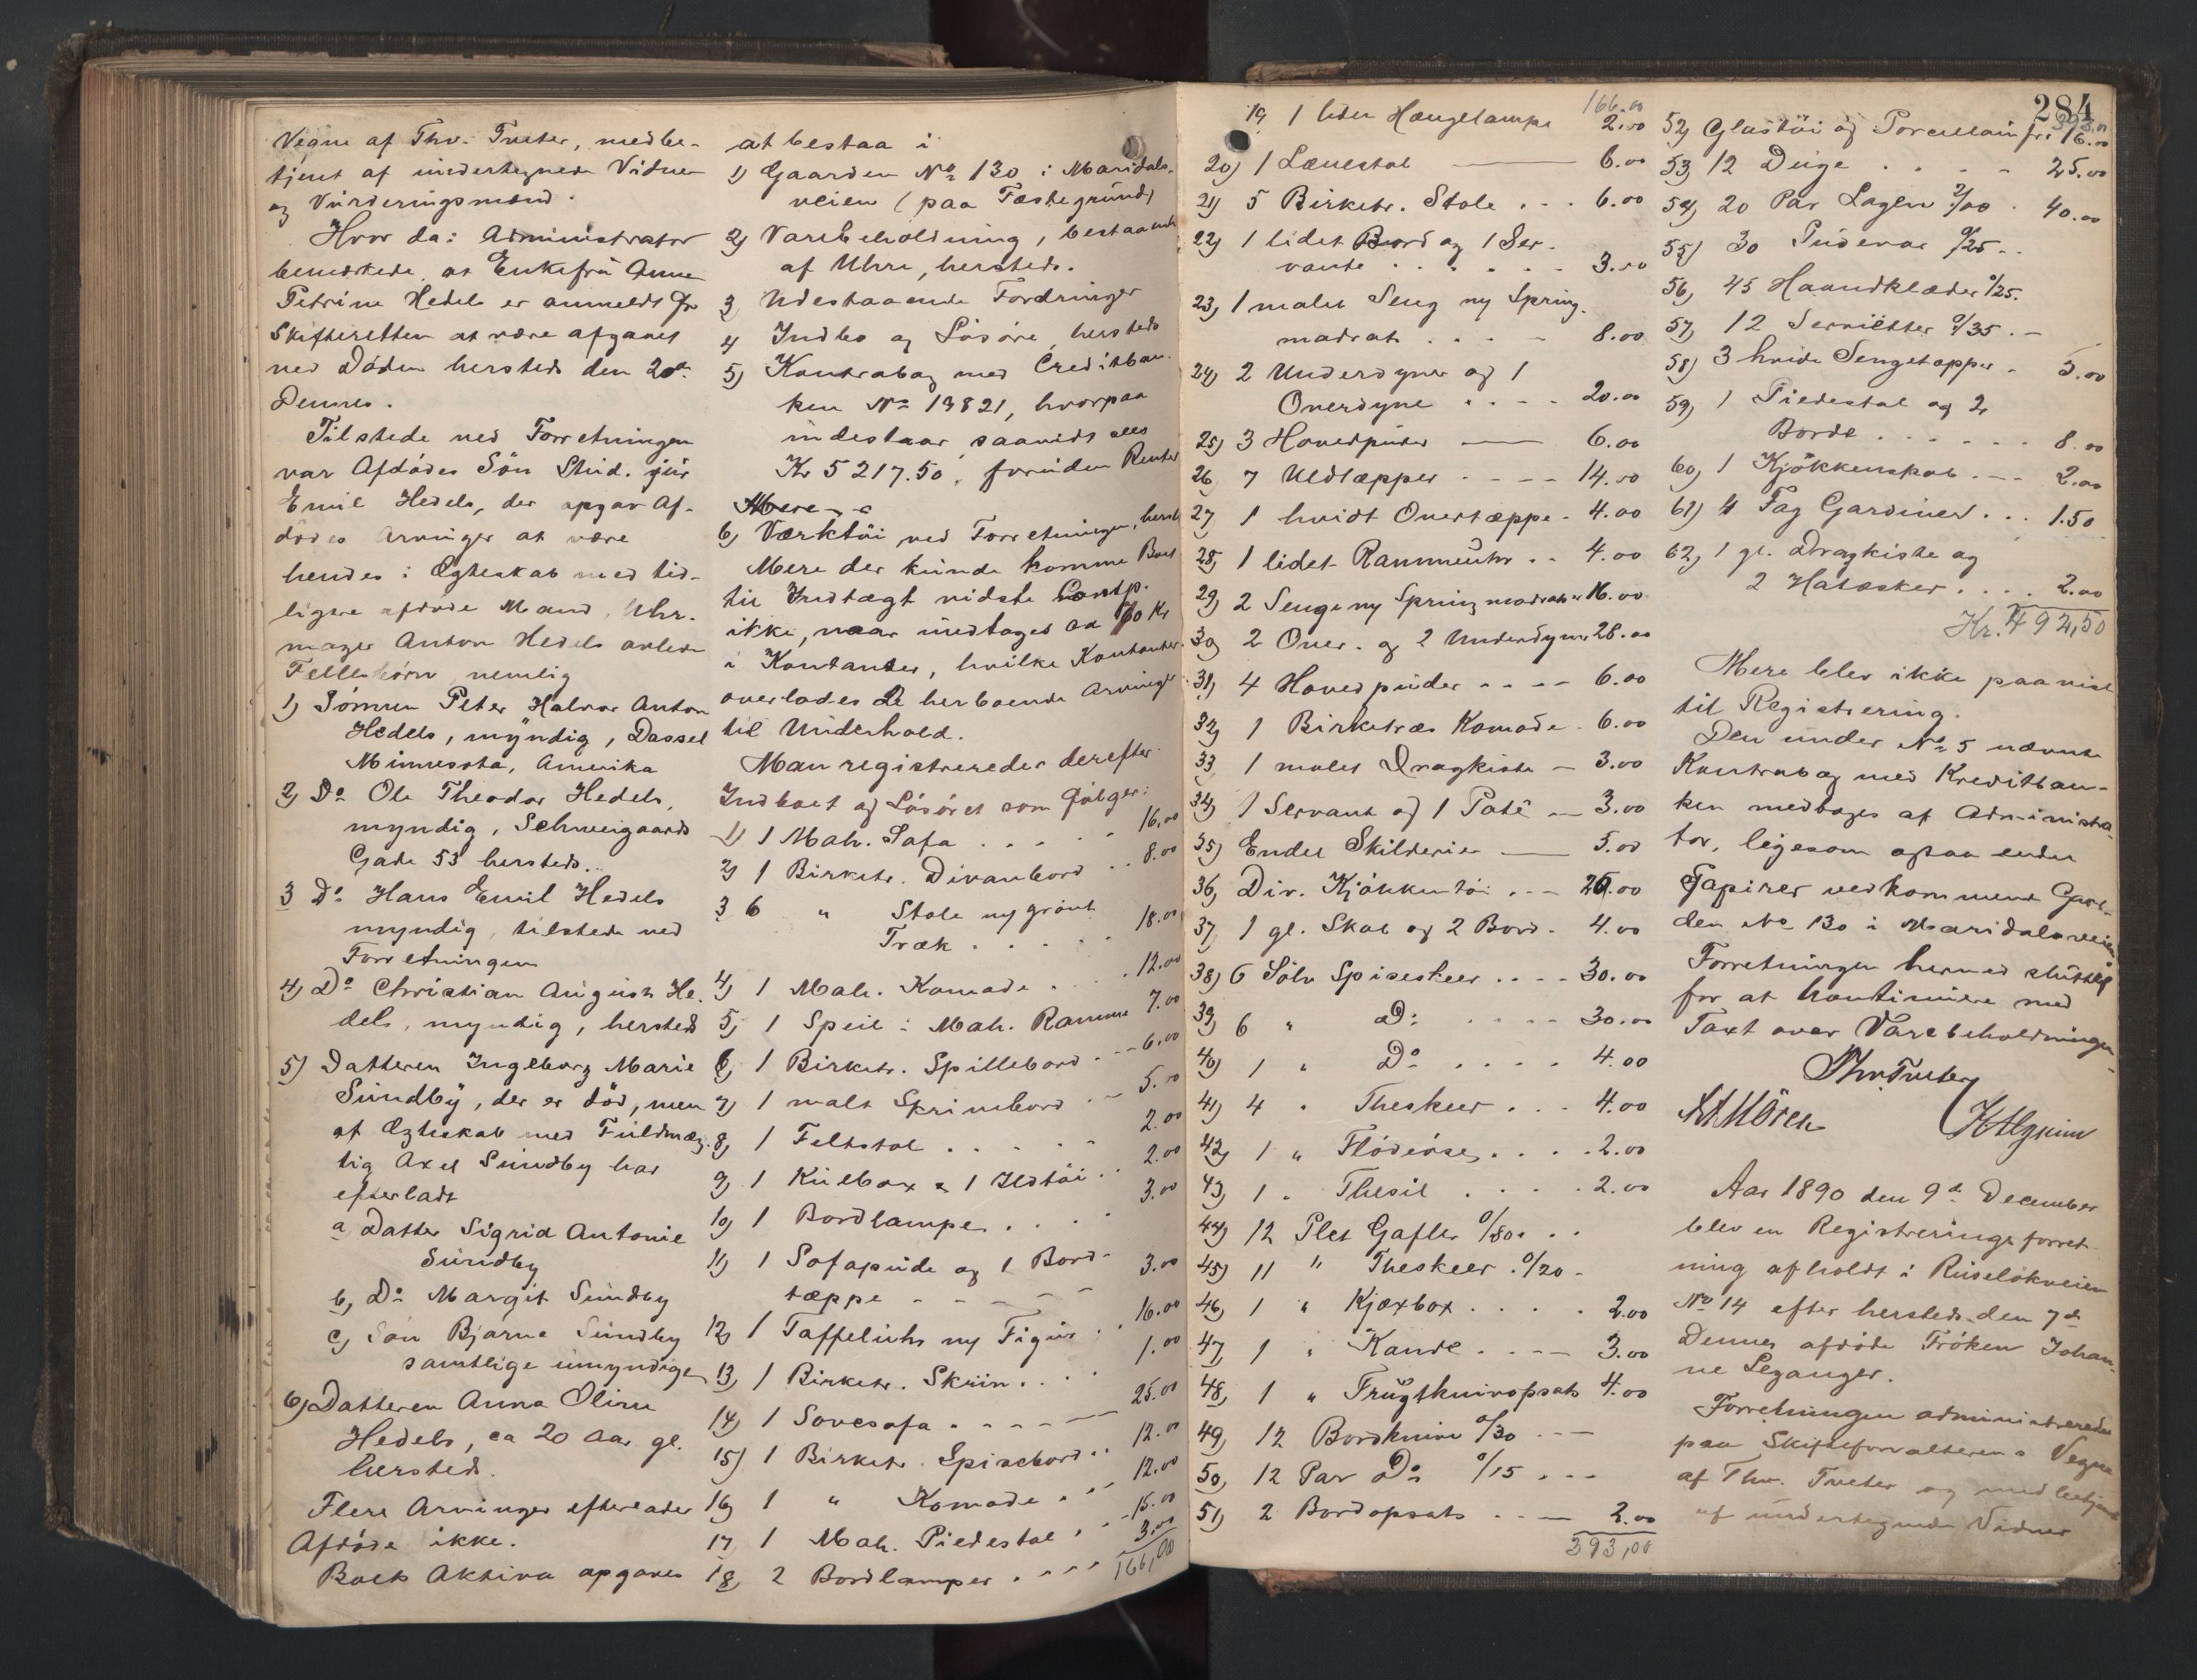 Vegne af Thv. Tveter, medbe-
tjent af undertegnede Vidner
og Vurderingsmænd.
Hvor da: Administrator
bemærkede, at Enkefru Anne
Petrine Hedels er anmeldt for
Skifteretten at være afgaaet
ved Døden hersteds den 20de
Dennes.
Tilstede ved Forretningen
var Afdødes Søn Stud. jur
Emil Hedels, der opgav Af-
dødes Arvinger at være
hendes i Ægteskab med tid-
ligere afdøde Mand, Uhr-
mager Anton Hedels avlede
Fællesbørn nemlig
1) Sønnen Peter Halvor Anton
Hedels, myndig, Dassel
Minnesota, Amerika
2) Do Ole Theodor Hedels,
myndig, Schweigaards
Gade 53 hersteds..
3 Do Hans Emil Hedels
myndig, tilstede ved
Forretningen
4) Do Christian August He-
dels, myndig, hersteds
5) Datteren Ingeborg Marie
Sundby, der er død, men
af Ægteskab med Fuldmæg-
tig Axel Sundby har
efterladt
a Datter Sigrid Antonie
Sundby
b, Do Margit Sundby
c, Søn Bjarne Sundby
samtlige umyndige
6) Datteren Anna Oline
Hedels, ca 20 Aar gl.
hersteds.
Flere Arvinger efterlader
Afdøde ikke.
Boets Aktiva opgaves
at bestaa i
1) Gaarden No 130 i Maridals-
veien (paa Fæstegrund)
2) Varebeholdning, bestaaende
af Uhre, hersteds.
3 Udestaaende Fordringer
4 Indbo og Løsøre hersteds
5) Kontrabog med Creditban-
ken No 13821, hvorpaa
indestaar saavidt sees
Kr 5217.50, foruden Renter
Mere
6) Værktøi ved Forretningen, herst
Mere der kunde komme Boet
til Indtægt vidste Comp.
ikke, naar undtages ca 70 Kr
i Kontanter, hvilke Kontanter
overlodes de herboende Arvinger
til Underhold.
Man registrerede derefter
Indboet og Løsøret som følger:
1) 1 Mah. Sofa . . . . 16.00
2) 1 Birketr. Divanbord . . 8.00
3 6 " Stole ny grønt
Træk . . . . . 18.00
4) 1 Mah. Komode . . . 12.00
5, 1 Speil i Mah. Ramme 7.00
6, 1 Birketr. Spillebord . - - 6.00
7) 1 malt Skrivebord . - 5.00
8, 1 Feltstol . . . . - 2.00
9) 1 Kulbox & 1 Ildtøi . . 2.00
10) 1 Bordlampe . . . . 3.00
11) 1 Sofapude og 1 Bord-
tæppe - - - - - 3.00
12, 1 Taffeluhr ny Figur . . 16.00
13, 1 Birketr. Skrin . . . . 1.00
14) 1 Sovesofa . - - - 25.00
15) 1 Birketr. Spisebord . . 12.00
16) 1 " Komode . . . 12.00
17, 1 Mah. Piedestal . . 15.00
18, 2 Bordlamper . . . . 3.00
166,00
166.00
19, 1 liden Hængelampe 2.00
20) 1 Lænestol — 6.00
21) 5 Birketr. Stole . - . 6.00
22) 1 lidet Bord og 1 Ser-
vante . . . . . . 3.00
23, 1 malet Seng ny Spring-
madrats . . . - 8.00
24) 2 Underdyner og 1
Overdyne . . . - 20.00
25) 3 Hovedpuder — 6.00
26, 7 Uldtæpper - - - - 14.00
27 1 hvidt Overtæppe - 4.00
28, 1 lidet Rammeuhr . . 4.00
29, 2 Senge ny Springmadrats 16.00
30 2 Over- og 2 Underdyner 28.00
31, 4 Hovedpuder - - - - 6.00
32, 1 Birketræs Komode . 6.00
33 1 malet Dragkiste — 3.00
34) 1 Servant og 1 Potè — 3.00
35) Endel Skilderier — 5.00
36, Div. Kjøkkentøi . . - 20.00
37, 1 gl. Skab og 2 Bord . 4.00
38) 6 Sølv Spiseskeer . . - - 30.00
39, 6 " Do . . - - 30.00
40) 1 " Do . . . . . 4.00
41, 4 " Theskeer . . . 4.00
42, 1 " Flødeøse . . . . 2.00
43, 1 " Thesil . . . . 2.00
44) 12 Plet Gafler 0/80 . . .
45) 11 " Theskeer . 0/20 -
46, 1 " Kjæxbox . . . . . 2.00
47, 1 " Kande . . - - 3.00
48, 1 " Frugtknivopsats 4.00
49, 12 Bordknive 0/30 . - -
50, 12 Par Do 0/15 . - -
51, 2 Bordopsats . . — 2.00
393,00
284
393.00
52, Glastøi og Porcellain for 16.00
53, 12 Duge . . . - 25.00
54, 20 Par Lagen 2/00 . 40.00
55) 30 Pudevar 0/25 . .
56, 45 Haandklæder 0/25.
57, 12 Servietter 0/35 . -
58) 3 hvide Sengetæpper . 5.00
59, 1 Piedestal og 2
Borde . . . . . . 8.00
60, 1 Kjøkkenskab . - - 2.00
61) 4 Fag Gardiner . . . 1.50
62, 1 gl. Dragkiste og
2 Hatæsker . . . . 2.00
Kr. 492,50
Mere blev ikke paavist
til Registrering.
Den under No 5 nævnte
Kontrabog med Kreditban-
ken medtoges af Administra-
tor, ligesom ogsaa endel
Papirer vedkommende Gaar-
den No 130 i Maridalsveien
Forretningen hermed sluttet
for at kontinuere med
Taxt over Varebeholdningen
Thv Tveter
Aar 1890 den 9de December
blev en Registreringsforret-
ning afholdt i Ruseløkveien
No 14 efter hersteds den 7de
Dennes afdøde Frøken Johan-
ne Leganger.
Forretningen administreredes
paa Skifteforvalterens Vegne
af Thv. Tveter og medbetjent
af undertegnede Vidner